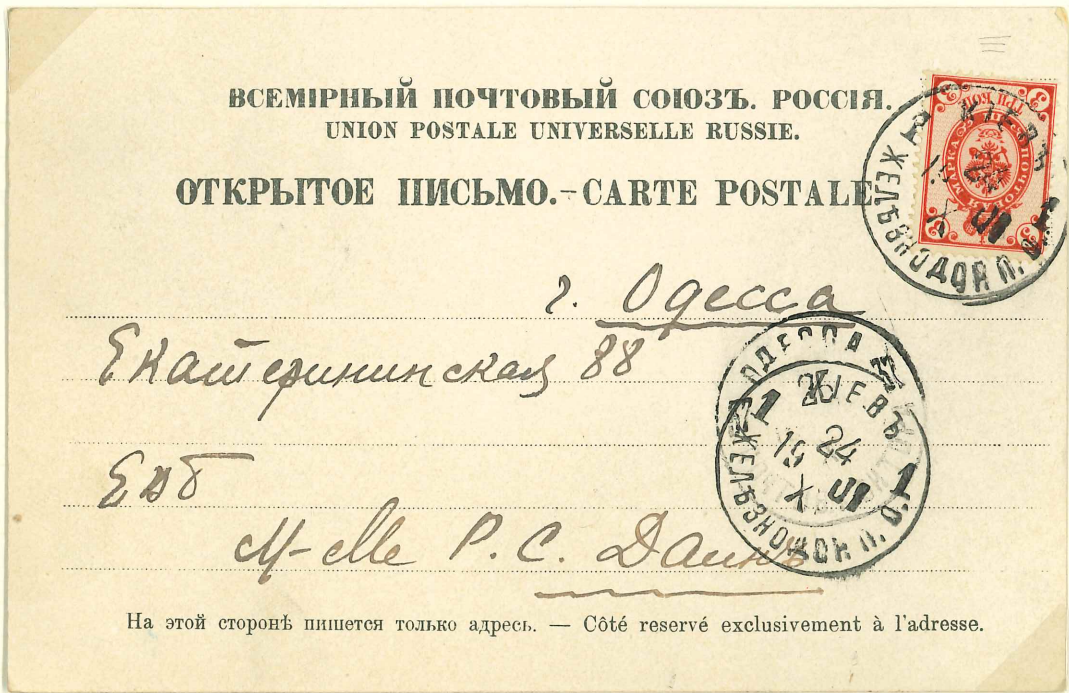 ВСЕМІРНЫЙ ПОЧТОВЫЙ СОЮЗЪ. РОССІЯ.
UNION POSTALE UNIVERSELLE RUSSIE.
ОТКРЫТОЕ ПИСЬМО.–CARTE POSTALE
КІЕВЪ
19 24
X VII
1
ЖЕЛѢЗНОДОР. П. О.
г. Одесса
Екатерининская 88
Евб
М-Ме Р. С.
ОДЕССА
КІЕВЪ
1 24 1
19
X VII
ЖЕЛѢЗНОДОР. П. О.
На этой сторонѣ пишется только адресъ. — Côté reservé exclusivement à l'adresse.